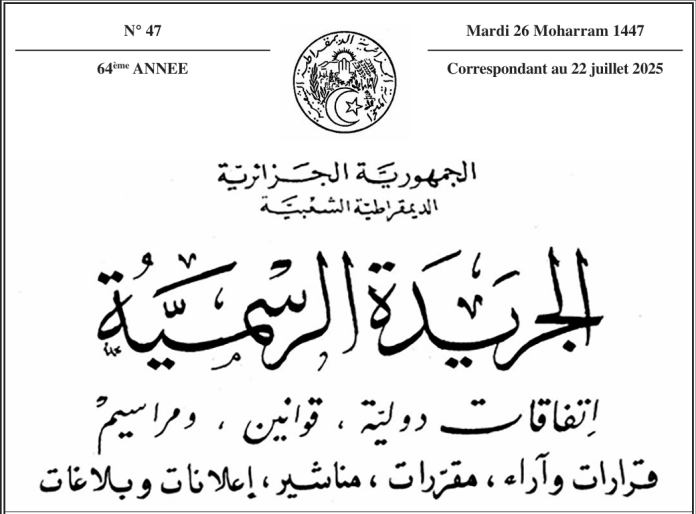 N° 47
Mardi 26 Moharram 1447
64ème ANNEE
Correspondant au 22 juillet 2025
الجمهوريّة الجزائريّة
الديمقراطيّة الشعبيّة
الجريدة الرسميّة
إتفاقات دوليّة ، قوانين ، ومراسيم
قرارات وآراء ، مقرّرات ، مناشير ، إعلانات وبلاغات